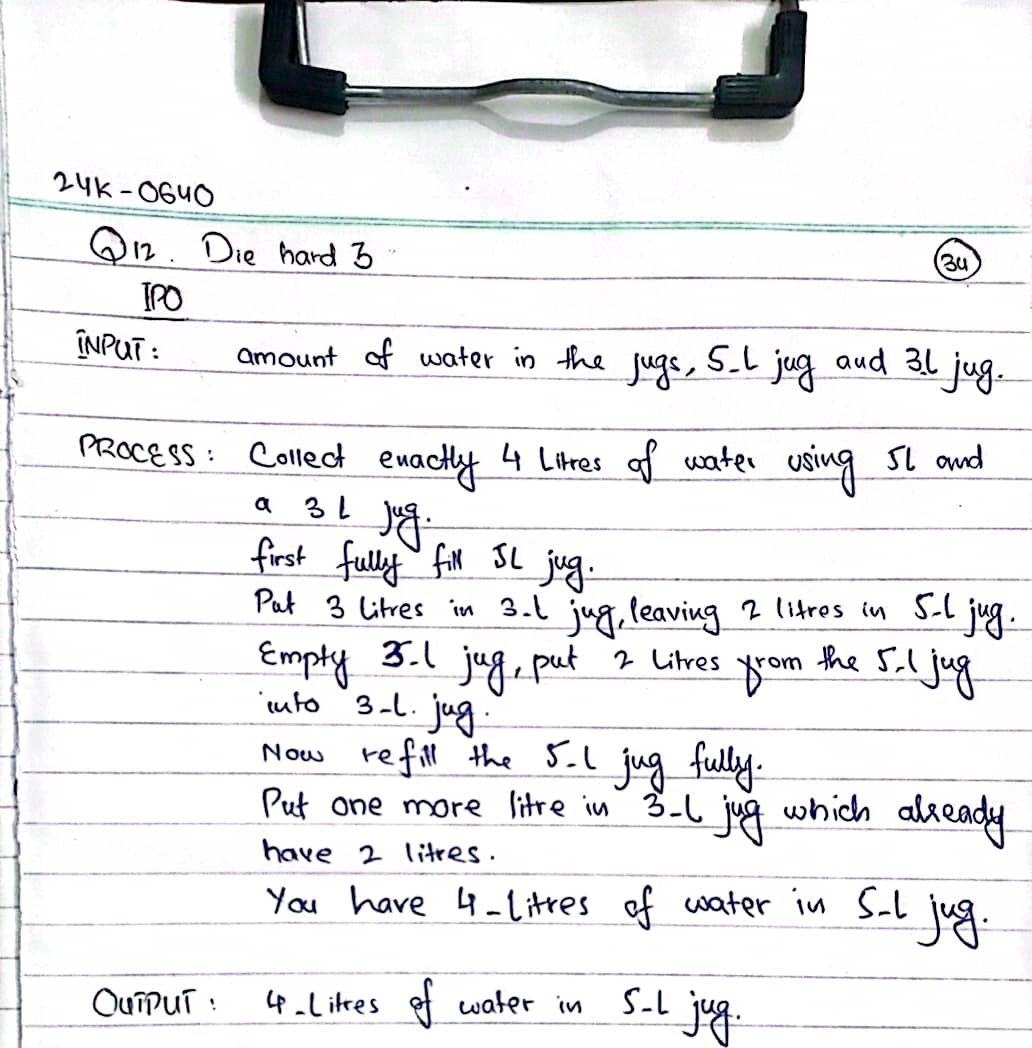 24K-0640
Q12. Die hard 3
34
IPO
INPUT: amount of water in the jugs, 5-L jug and 3L jug.
PROCESS: Collect enactly 4 Litres of water using 5L and
a 3L jug.
first fully fill 5L jug.
Put 3 litres in 3-L jug, leaving 2 litres in 5-L jug.
Empty 3-L jug, put 2 Litres from the 5-L jug
into 3-L. jug.
Now refill the 5-L jug fully.
Put one more litre in 3-L jug which already
have 2 litres.
You have 4-Litres of water in 5-L jug.
OUTPUT: 4-Litres of water in 5-L jug.